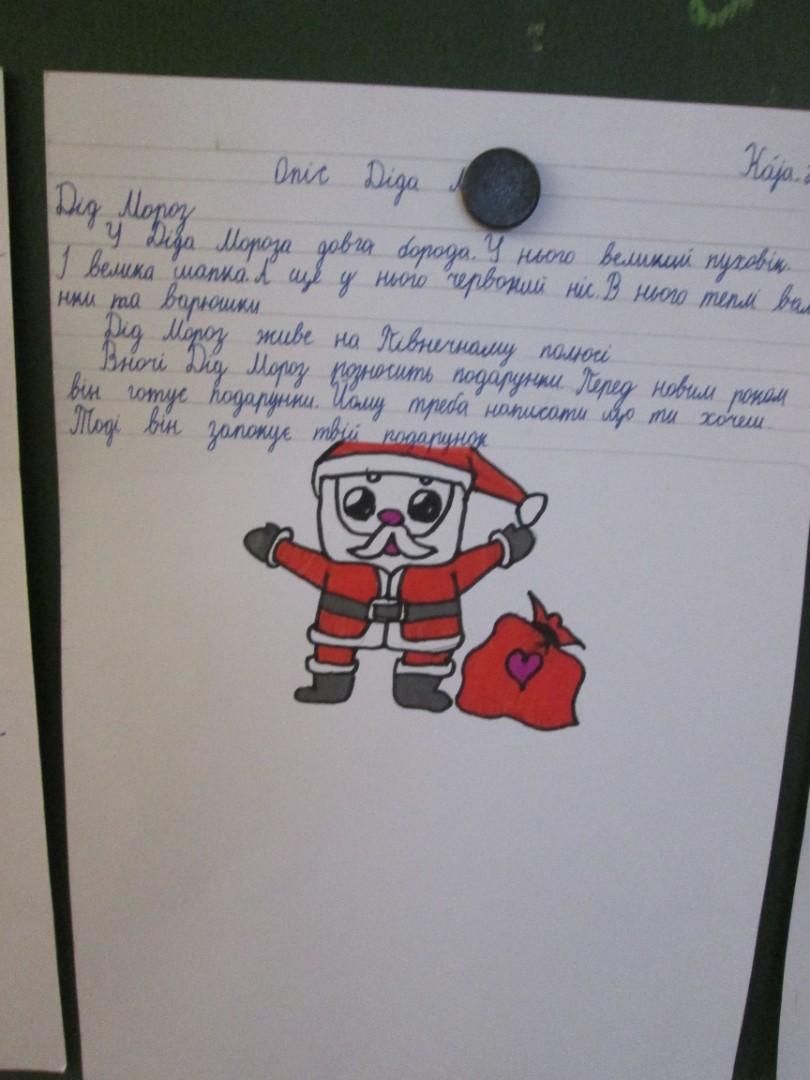 Опіс Діда
Каја.
Дід Мороз
У Діда Мороза довга борода. У нього великий пуховік.
І велика шапка. А ще у нього червоний ніс. В нього теплі вал
нки та варюшки
Дід Мороз живе на Північному полюсі
Вночі Дід Мороз розносить подарунки. Перед новим роком
він готує подарунки. Йому треба написати що ти хочеш.
Тоді він запокує твій подарунок